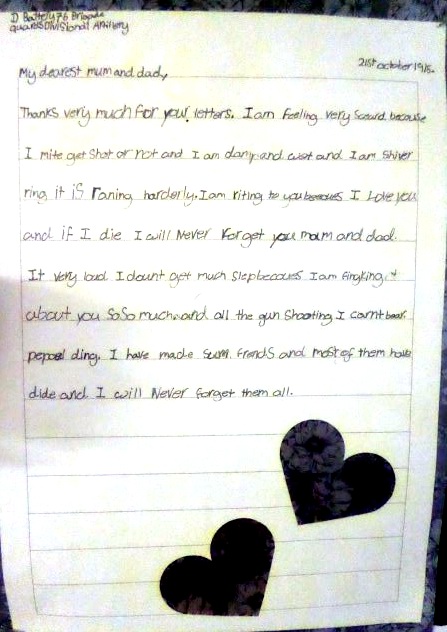 D Battery 76 Brigade
guards Divisional Artillery
21st october 1915.
My dearest mum and dad,
Thanks very much for your letters. I am feeling very scard because
I mite get shot or not and I am damp and wet and I am shiver
ring it is raning harderly. I am riting to you becoues I Love you
and if I die I will Never forget you mum and dad.
It very loud I dount get much slep becoues I am fingking
about you SoSo much and all the gun Shooting I carnt bear
pepool ding. I have made sum frends and most of them have
dide and I will Never forget them all.